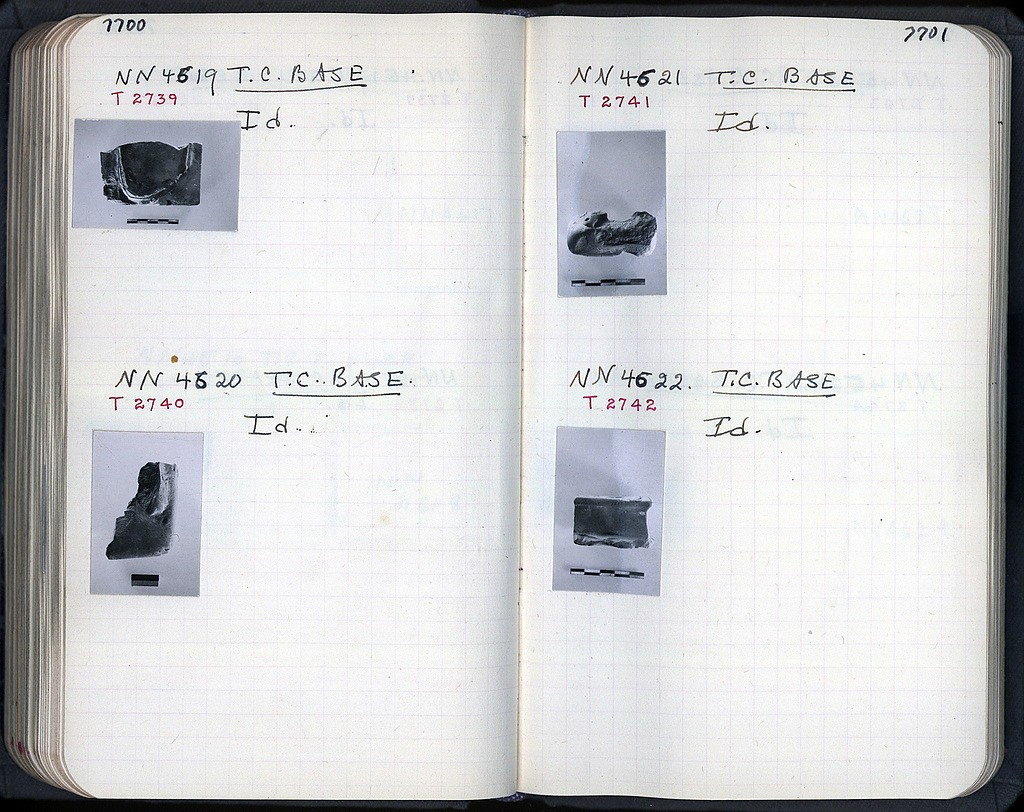 7700
NN 4519 T.C. BASE
T 2739
Id.
NN 4520 T.C. BASE.
T 2740
Id.
7701
NN 4521 T.C. BASE
T 2741
Id.
NN 4522. T.C. BASE
T 2742
Id.